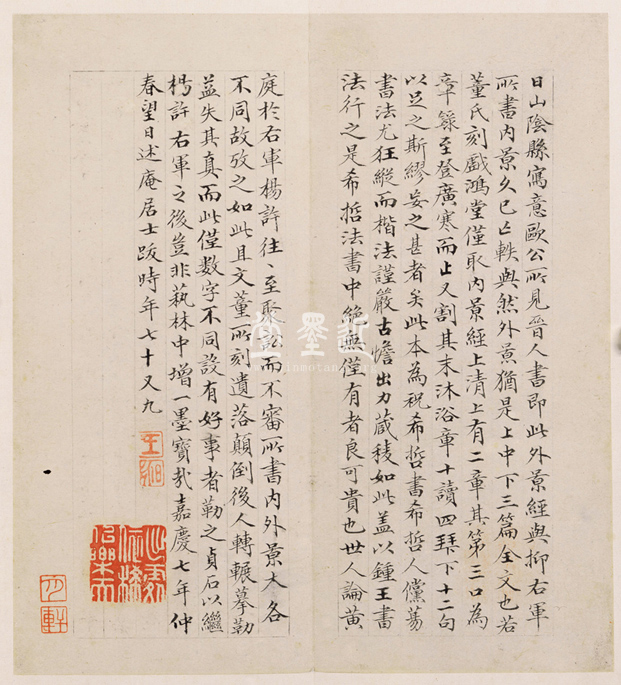 日山陰縣寫意歐公所見晉人書即此外景經與抑右軍
所書內景久已亡軼與然外景猶是上中下三篇全文也若
董氏刻戲鴻堂僅取內景經上清上有二章其第三口為
章籙至登廣寒而止又割其末沐浴章十讀四拜下十二句
以足之斯繆妄之甚者矣此本為祝希哲書希哲人儻蕩
書法尤狂縱而楷法謹嚴古蟾出力蔵稜如此盖以鍾王書
法行之是希哲法書中絶無僅有者良可貴也世人論黃
庭於右軍楊許往〻至聚訟而不審所書內外景大各
不同故攷之如此且文董所刻遺落顛倒後人轉輾摹勒
益失其真而此僅數字不同設有好事者勒之貞石以繼
楊許右軍之後豈非蓺林中增一墨寶哉嘉慶七年仲
春望日述庵居士跋時年七十又九
王昶
近墨堂
www.jinmotang.org